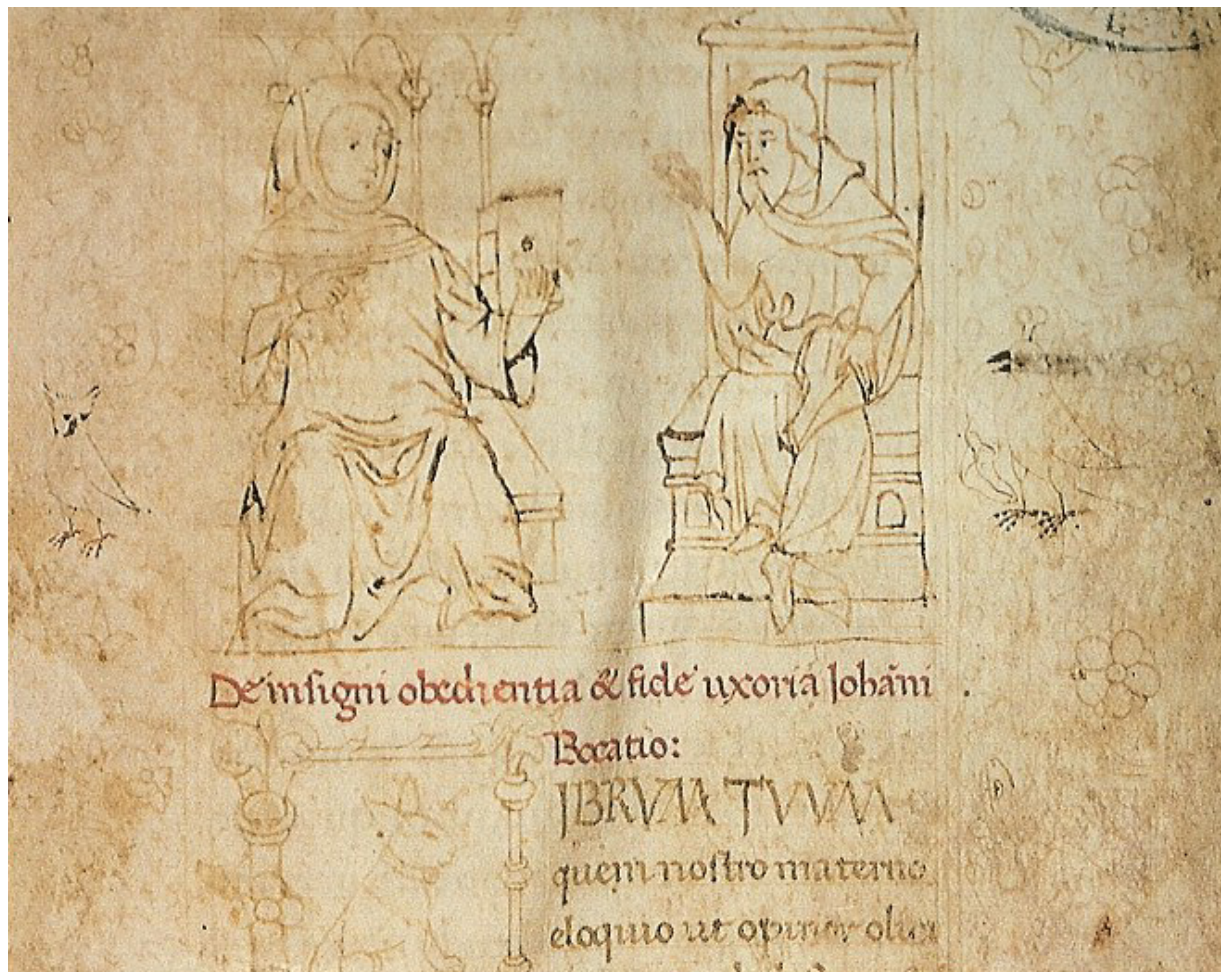 De insigni obedientia & fide uxoria Iohāni
Bocatio:
IBRVM TVVM
quem nostro materno
eloquio ut opinor olim